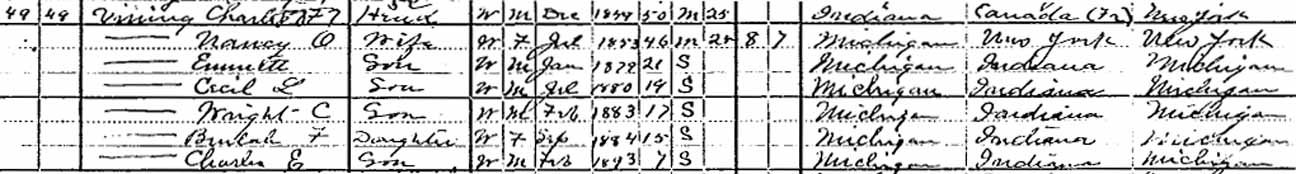 49 49 Vining Charles F Head W M Dec 1849 50 M 25 Indiana Canada (Fr) New York
Nancy O Wife W F Jul 1853 46 M 25 8 7 Michigan New York New York
Emmett Son W M Jan 1879 21 S Michigan Indiana Michigan
Cecil L Son W M Jul 1880 19 S Michigan Indiana Michigan
Wright C Son W M Feb 1883 17 S Michigan Indiana Michigan
Beulah F Daughter W F Sep 1884 15 S Michigan Indiana Michigan
Charles E Son W M Feb 1893 7 S Michigan Indiana Michigan